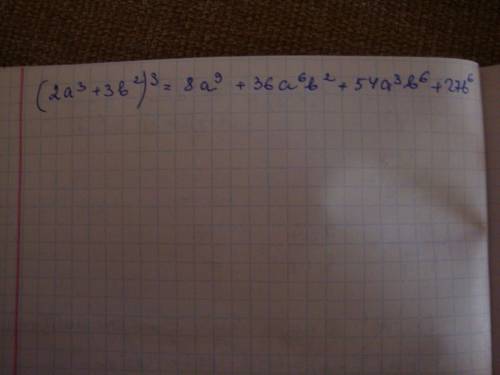 (2a³+3b²)³= 8a⁹ +36a⁶b²+54a³b⁶+27b⁶